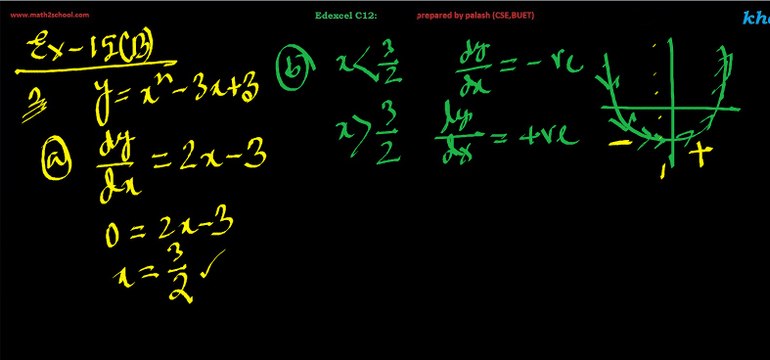 www.math2school.com
Edexcel C12:
prepared by palash (CSE,BUET)
kha
Ex-15(B)
3 y = xⁿ - 3x + 8
(a) dy/dx = 2x - 3
0 = 2x - 3
x = 3/2 ✓
(b) x < 3/2 dy/dx = -ve
x > 3/2 dy/dx = +ve
- +